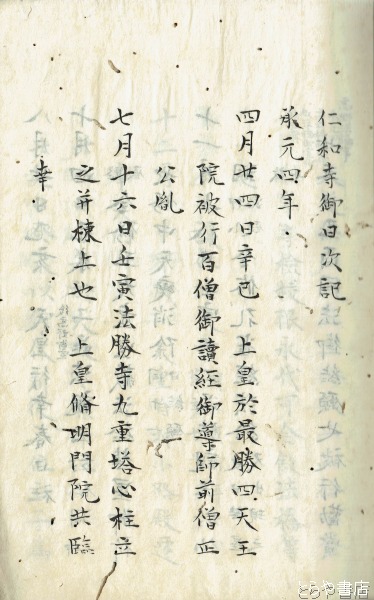 仁和寺御日次記
承元四年・
四月廿四日辛巳　上皇於最勝四天王
院被行百僧御讀經御導師前僧正
公胤
七月十六日壬寅法勝寺九重塔心柱立
之并棟上也　上皇脩明門院共臨
幸
とらや書店